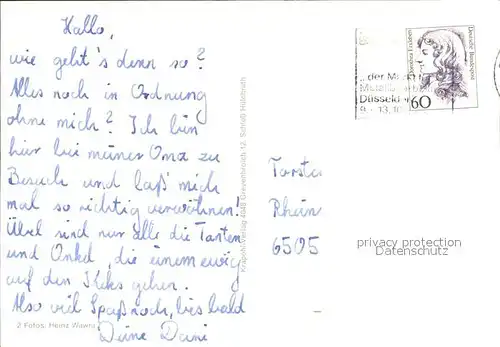 Hallo,
wie geht's denn so?
Alles noch in Ordnung
ohne mich? Ich bin
hier bei meiner Oma zu
Besuch und laß' mich
mal so richtig verwöhnen!
Übel sind nur alle die Tanten
und Onkel, die einem ewig
auf den Keks gehen.
Also viel Spaß noch, bis bald
Deine Dani
2 Fotos: Heinz Wawra
Verlag 4048 Grevenbroich 12, Schloß Hülchrath
...der M
Düsseld
9.-13.10
60
Deutsche Bundespost
Torste
Rhein
6505
privacy protection
Datenschutz